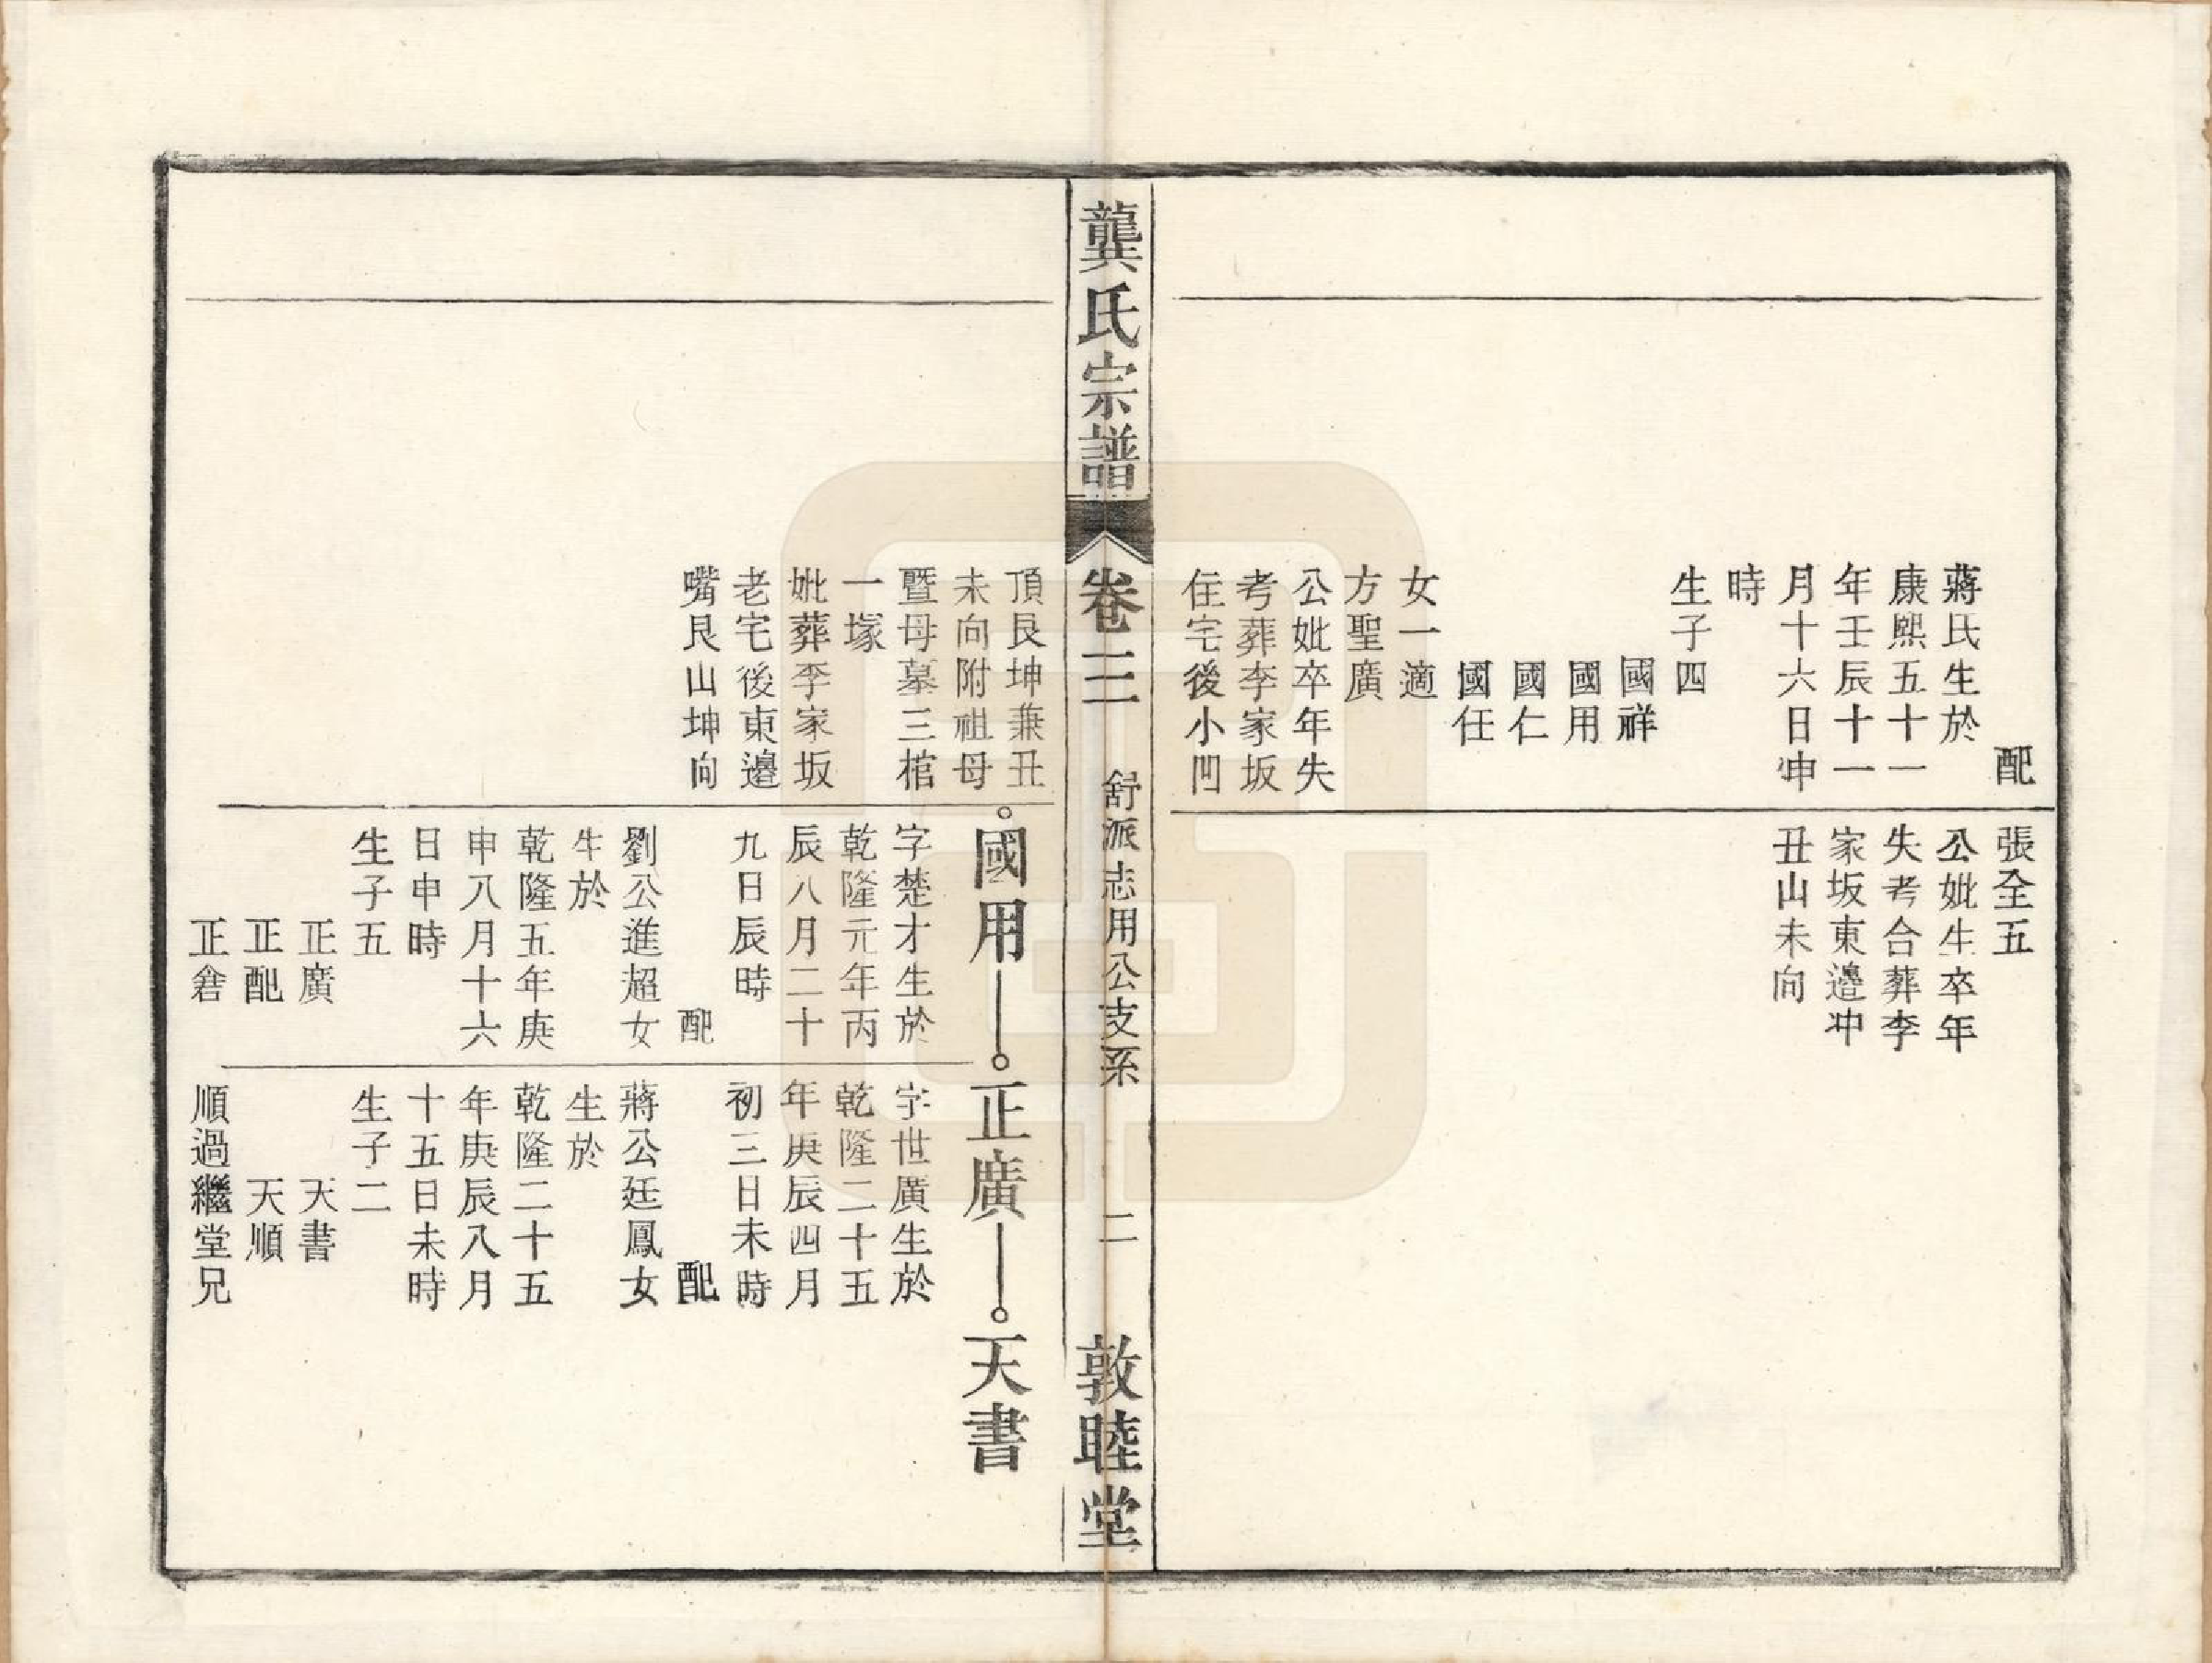 配
蔣氏生於
康熙五十一
年壬辰十一
月十六日申
時
生子四
國祥
國用
國仁
國任
女一適
方聖廣
公妣卒年失
考葬李家坂
住宅後小凹
張全五
公妣生卒年
失考合葬李
家坂東邊冲
丑山未向
龔氏宗譜
卷三
舒派志用公支系
二
敦睦堂
頂艮坤兼丑
未向附祖母
暨母墓三棺
一塚
妣葬李家坂
老宅後東邊
嘴艮山坤向
國用
字楚才生於
乾隆元年丙
辰八月二十
九日辰時
配
劉公進超女
生於
乾隆五年庚
申八月十六
日申時
生子五
正廣
正配
正
正廣
字世廣生於
乾隆二十五
年庚辰四月
初三日未時
配
蔣公廷鳳女
生於
乾隆二十五
年庚辰八月
十五日未時
生子二
天書
天順
順過繼堂兄
天書